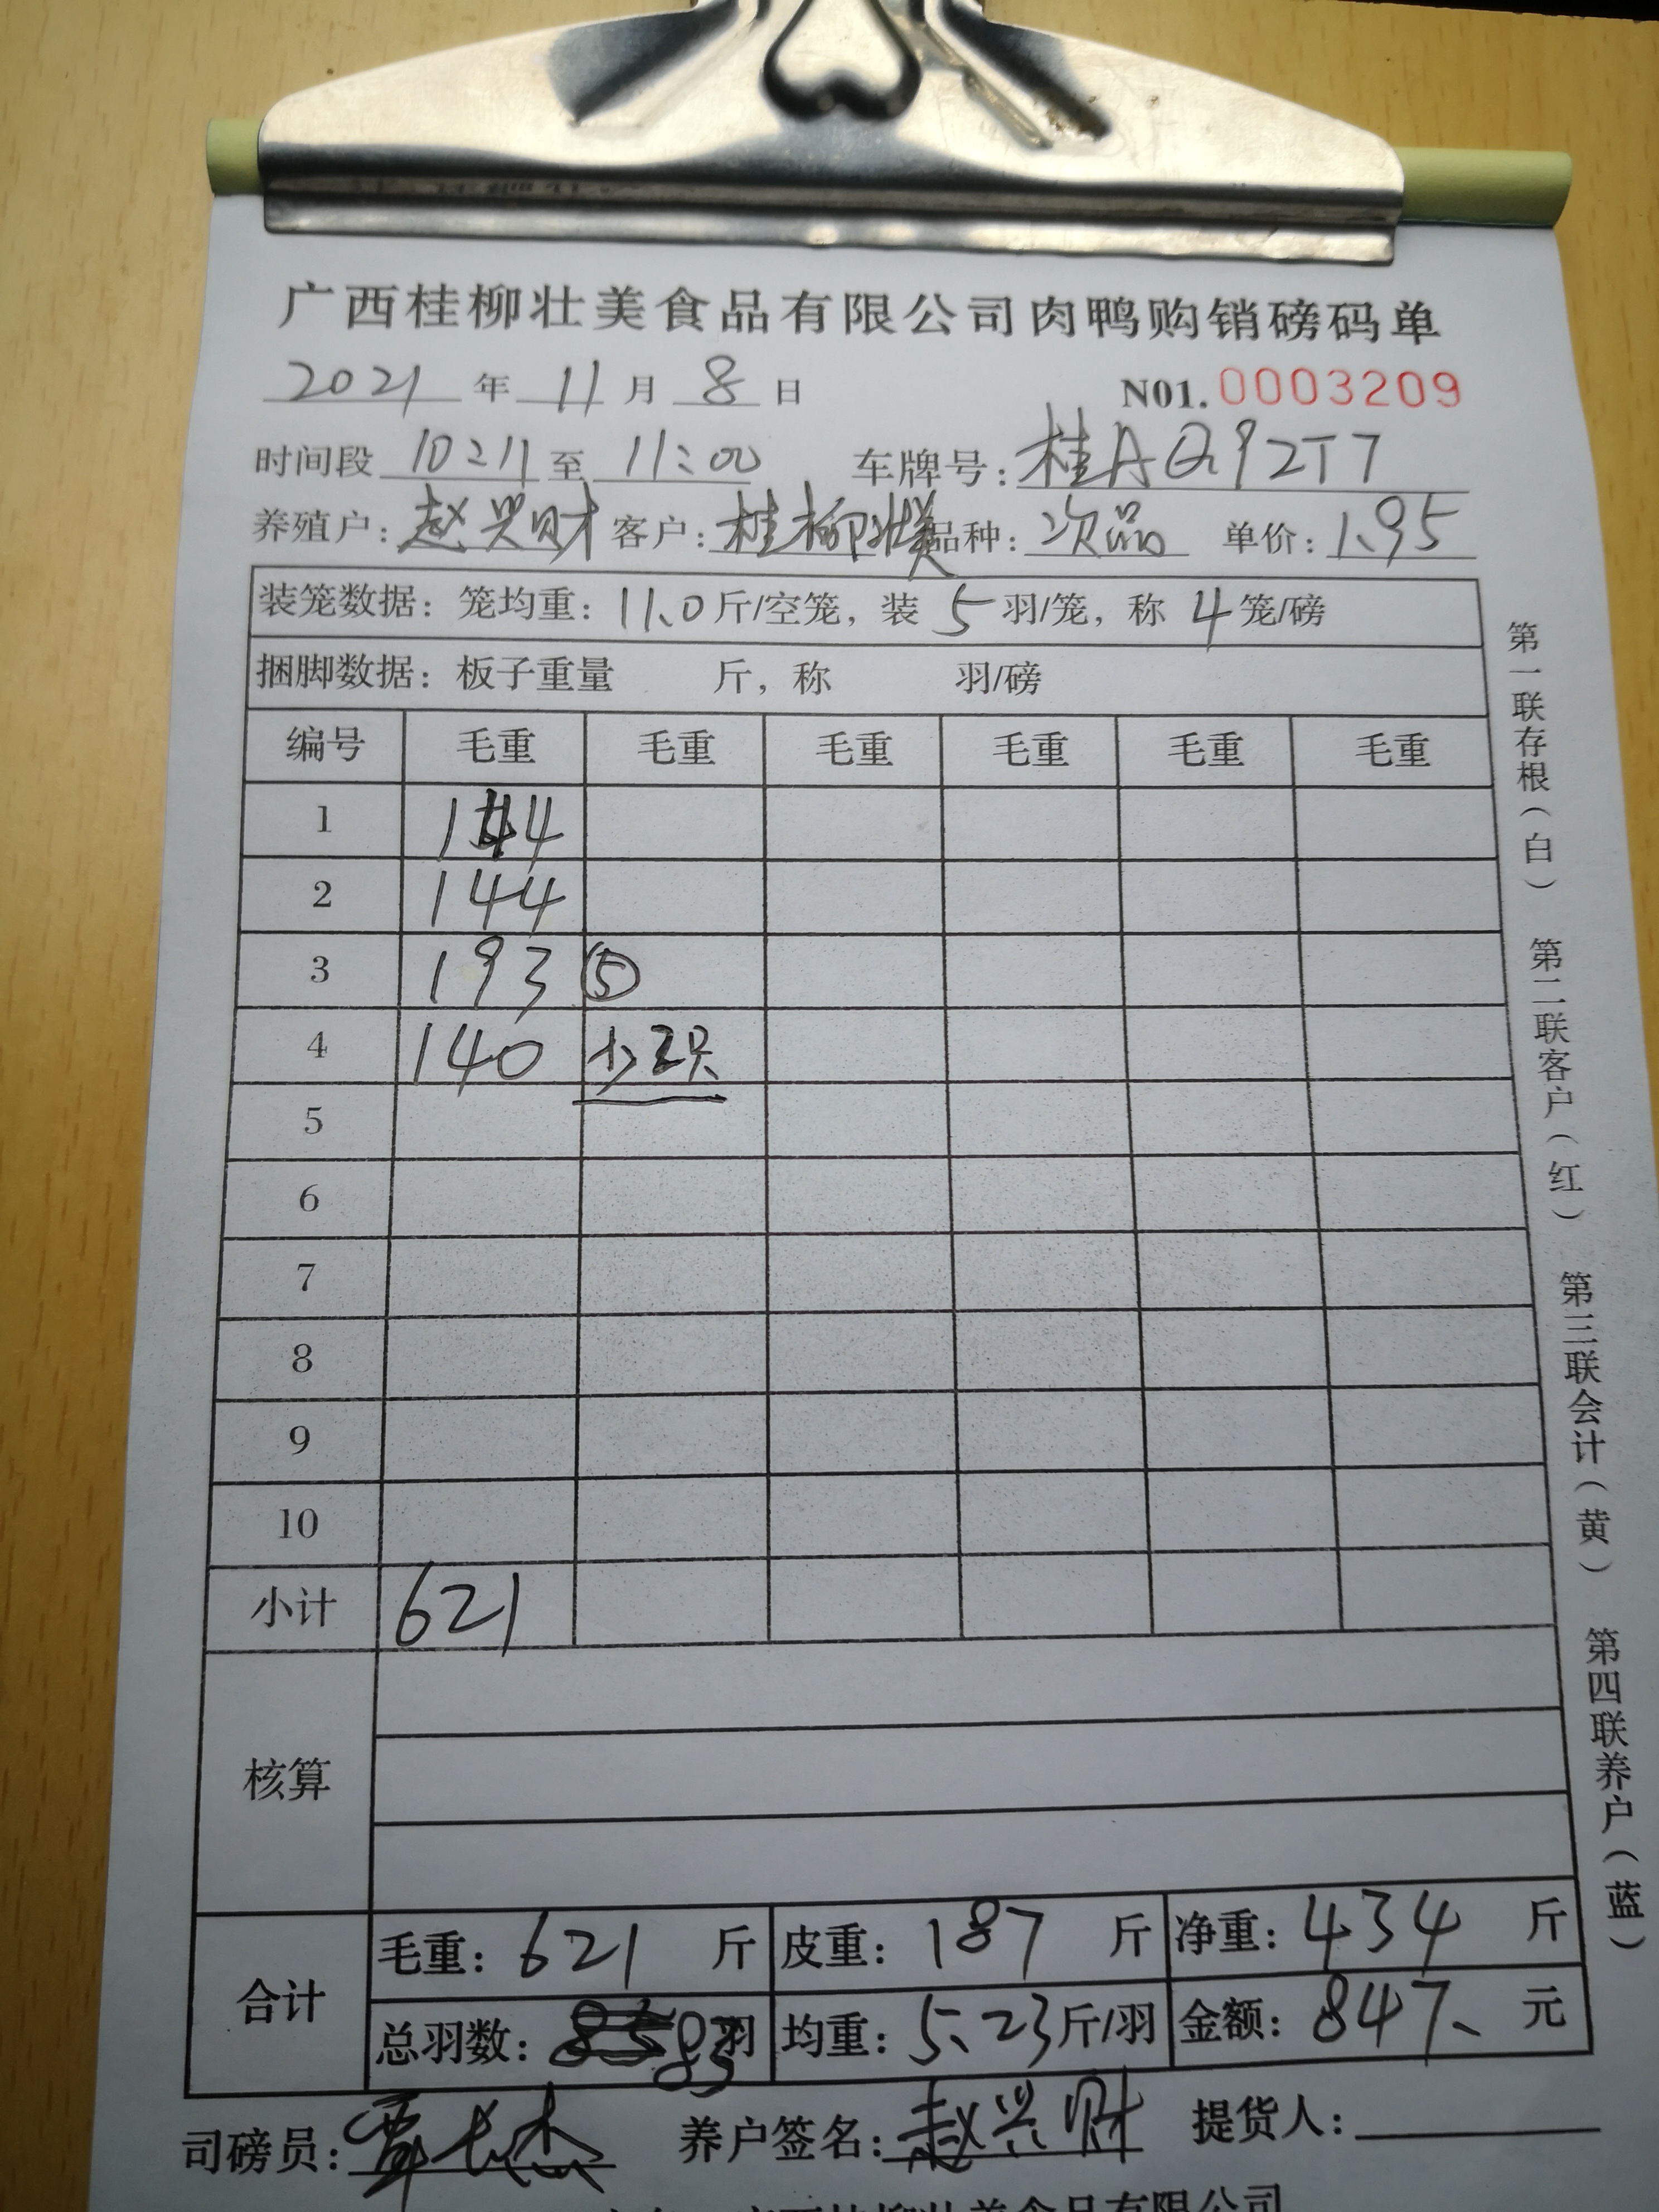 广西桂柳壮美食品有限公司肉鸭购销磅码单
2021 年 11 月 8 日 N01. 0003209
时间段 10:11 至 11:00 车牌号: 桂AQ92T7
养殖户: 赵兴财 客户: 桂柳壮美 品种: 次品 单价: 1.95
装笼数据: 笼均重: 11.0 斤/空笼, 装 5 羽/笼, 称 4 笼/磅
捆脚数据: 板子重量 斤, 称 羽/磅
编号 毛重 毛重 毛重 毛重 毛重 毛重
1 144
2 144
3 193 ⑤
4 140 少2只
5
6
7
8
9
10
小计 621
核算
合计
毛重: 621 斤 皮重: 187 斤 净重: 434 斤
总羽数: 83 羽 均重: 5.23 斤/羽 金额: 847. 元
司磅员: 覃长杰 养户签名: 赵兴财 提货人:
广西桂柳壮美食品有限公司
第一联存根(白) 第二联客户(红) 第三联会计(黄) 第四联养户(蓝)